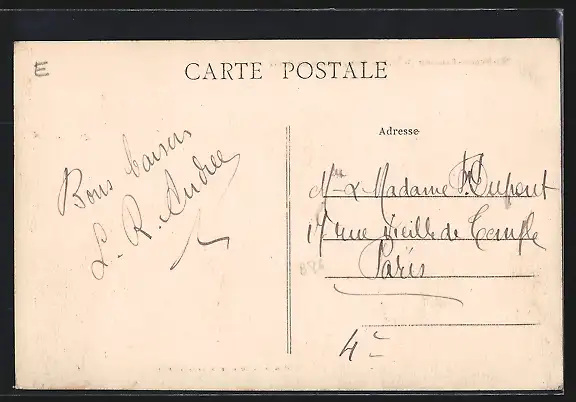 E
CARTE POSTALE
Bons baisers
L. R. Andrée
Adresse
Mr & Madame F. Dupont
17 rue Vieille de Temple
Paris
4e